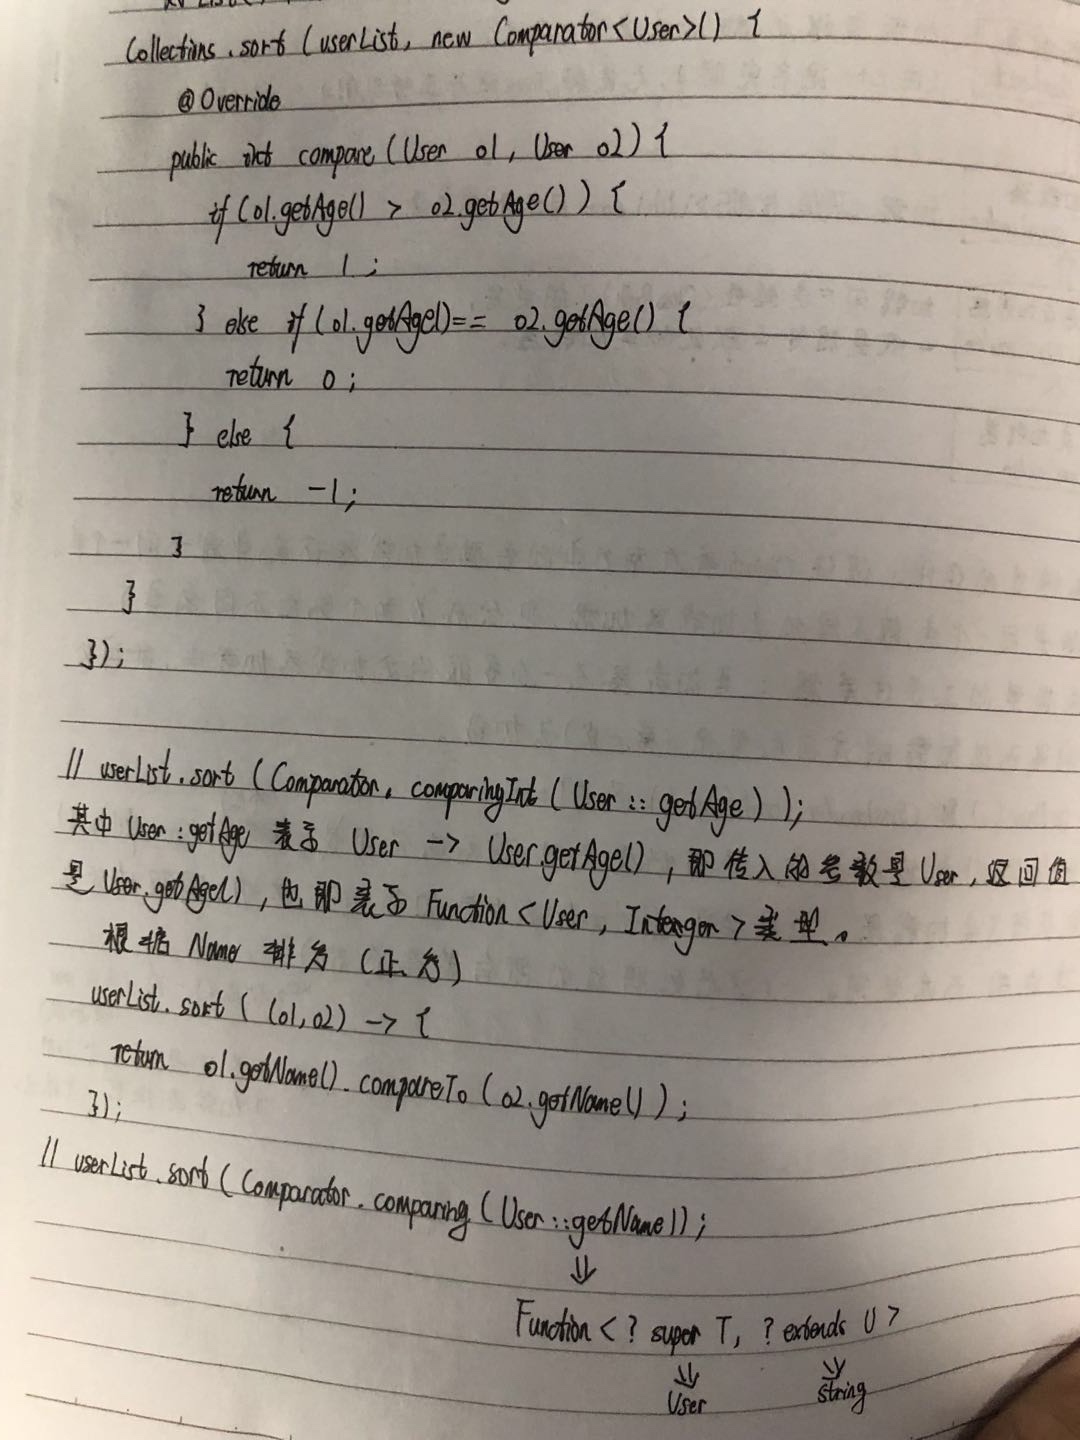 Collections.sort (userList, new Comparator<User>() {
@Override
public int compare (User o1, User o2) {
if (o1.getAge() > o2.getAge()) {
return 1;
} else if (o1.getAge() == o2.getAge() {
return 0;
} else {
return -1;
}
}
});
// userList.sort (Comparator. comparingInt (User :: getAge));
其中 User:getAge 表示 User -> User.getAge(), 即传入的参数是User, 返回值
是User.getAge(), 也即表示 Function<User, Intenger>类型。
根据 Name 排序 (正序)
userList.sort ( (o1,o2) -> {
return o1.getName().compareTo (o2.getName());
});
// userList.sort (Comparator.comparing (User::getName));
⇓
Function <? super T, ? extends U>
⇓ ⇓
User String